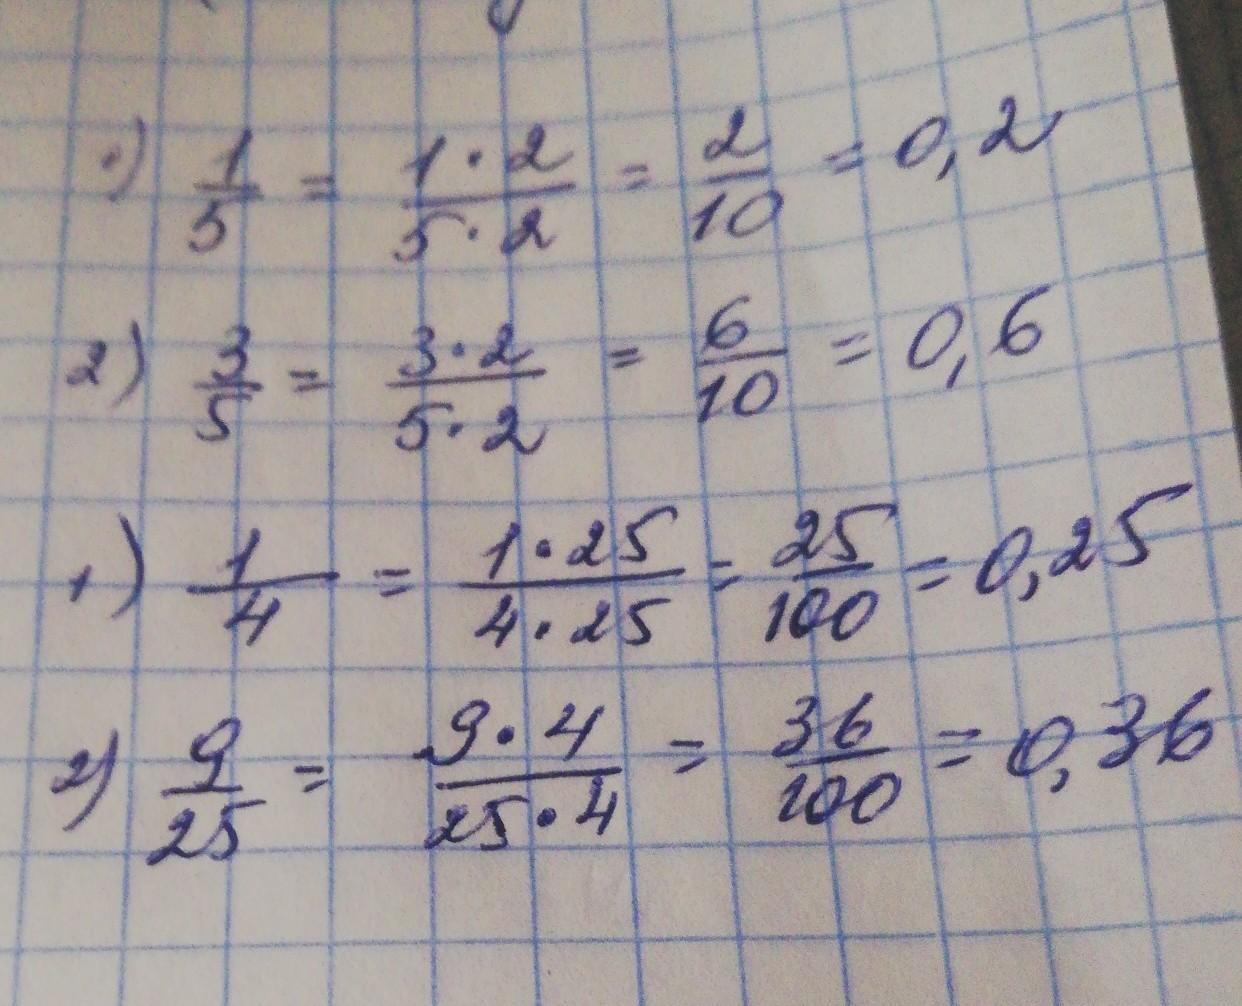 1) 1/5 = 1·2/5·2 = 2/10 = 0,2
2) 3/5 = 3·2/5·2 = 6/10 = 0,6
1) 1/4 = 1·25/4·25 = 25/100 = 0,25
2) 9/25 = 9·4/25·4 = 36/100 = 0,36